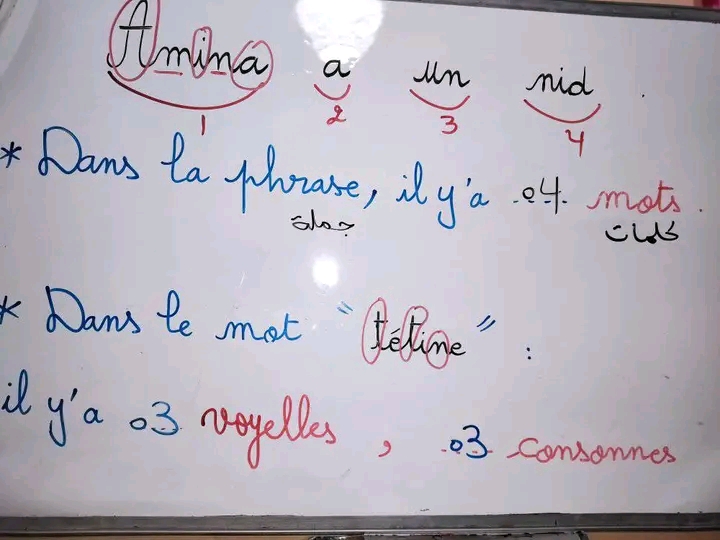 Amina a un nid .
1 2 3 4
* Dans la phrase, il y'a 04 mots.
جملة كلمات
* Dans le mot "tétine" :
il y'a 03 voyelles, 03 consonnes